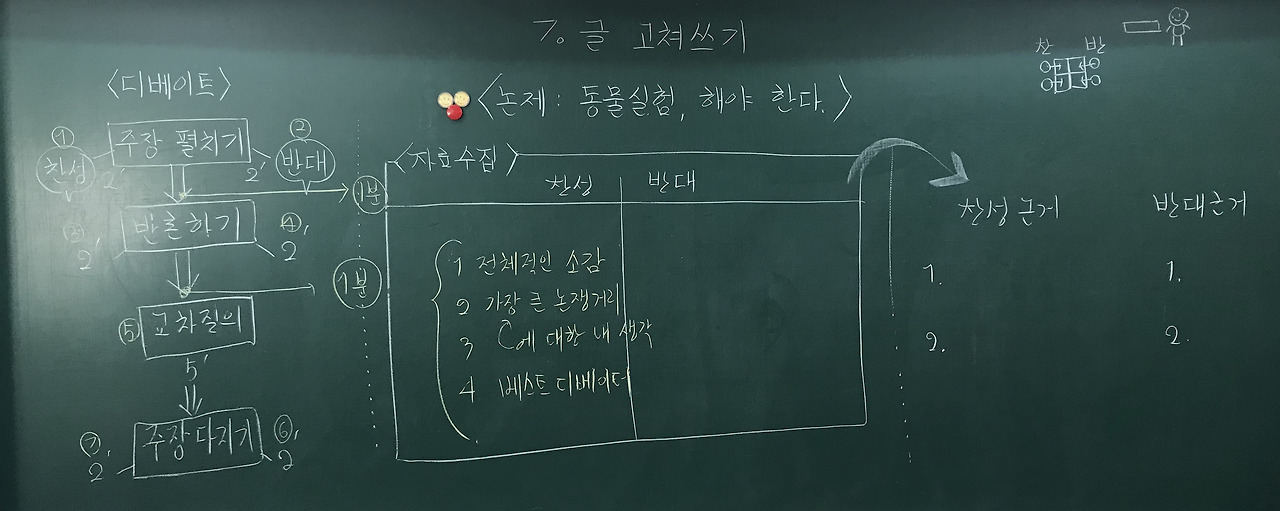 7. 글 고쳐쓰기
<디베이트>
<논제 : 동물실험, 해야 한다.>
찬 반
① 찬성
주장 펼치기
② 반대
2' 2'
1분
반론하기
③, 2
④, 2
1분
⑤ 교차질의
5'
주장다지기
⑦, 2
⑥, 2
<자료수집>
찬성 반대
1 전체적인 소감
2 가장 큰 논쟁거리
3 에 대한 내 생각
4 베스트 디베이터
찬성 근거
1.
2.
반대근거
1.
2.